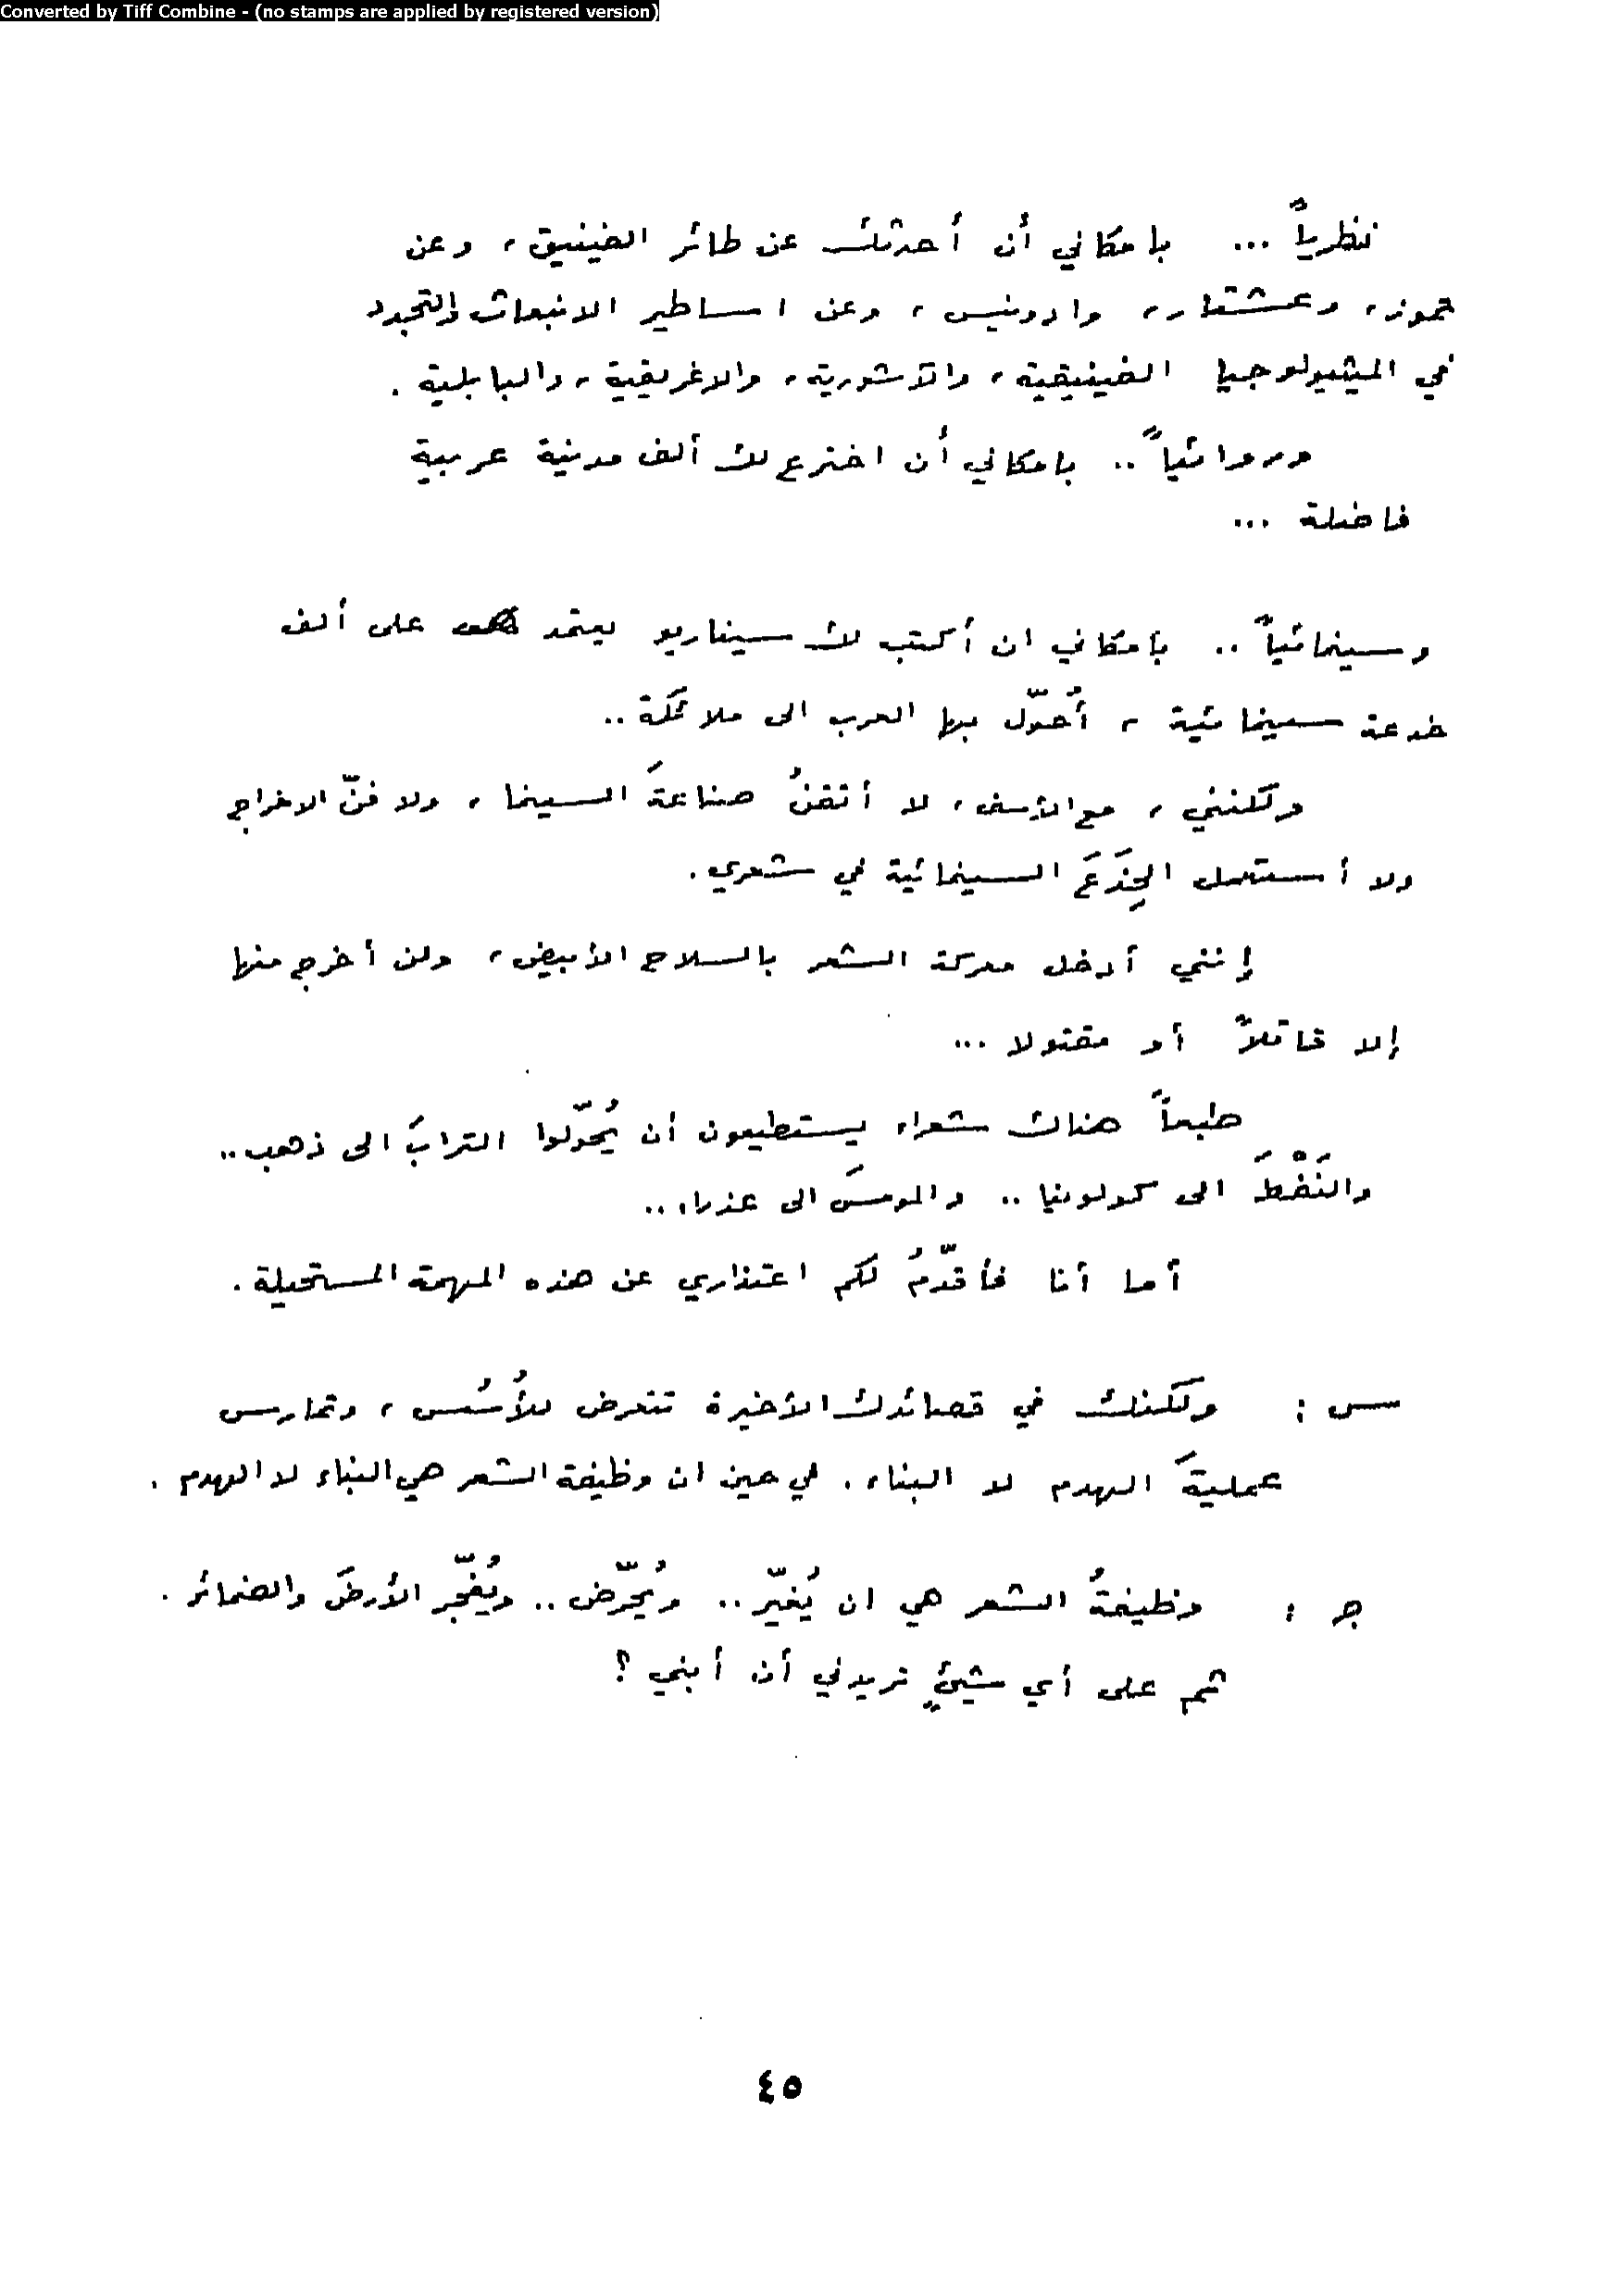 Converted by Tiff Combine - (no stamps are applied by registered version)
نظرياً ... بامكاني أن أحدثك عن طائر الفينيق، وعن
تموز، وعشتار، وادونيس، وعن اساطير الانبعاث والتجدد
في الميثيولوجيا الفينيقية، والآشورية، والاغريقية، والبابلية .
وروائياً .. بامكاني أن اخترع لك ألف مدينة عربية
فاضلة ...
وسينمائياً .. بإمكاني ان أكتب لك سيناريو يعتمد على ألف
خدعة سينمائية، أُحوّل بها العرب الى ملائكة ..
ولكنني، مع الأسف، لا أتقنُ صناعةَ السينما، ولا فنّ الاخراج
ولا أستعمل الخِدَعَ السينمائية في شعري .
إنني أدخل معركة الشعر بالسلاح الأبيض، ولن أخرج منها
إلا قاتلاً أو مقتولا ...
طبعاً هناك شعراء يستطيعون أن يُحوّلوا الترابَ الى ذهب ..
والنَفْطَ الى كولونيا .. والمومسَ الى عذراء ..
أما أنا فأقدّمُ لكم اعتذاري عن هذه المهمة المستحيلة .
س : ولكنك في قصائدك الأخيرة تتعرض للأُسُس، وتمارس
عمليةَ الهدم لا البناء . في حين ان وظيفة الشعر هي البناء لا الهدم .
ج : وظيفةُ الشعر هي ان يُغيّر .. ويُحرّض .. ويُفجّر الأرضَ والضمائر .
ثم على أي شيئٍ تريدني أن أبني ؟
٤٥